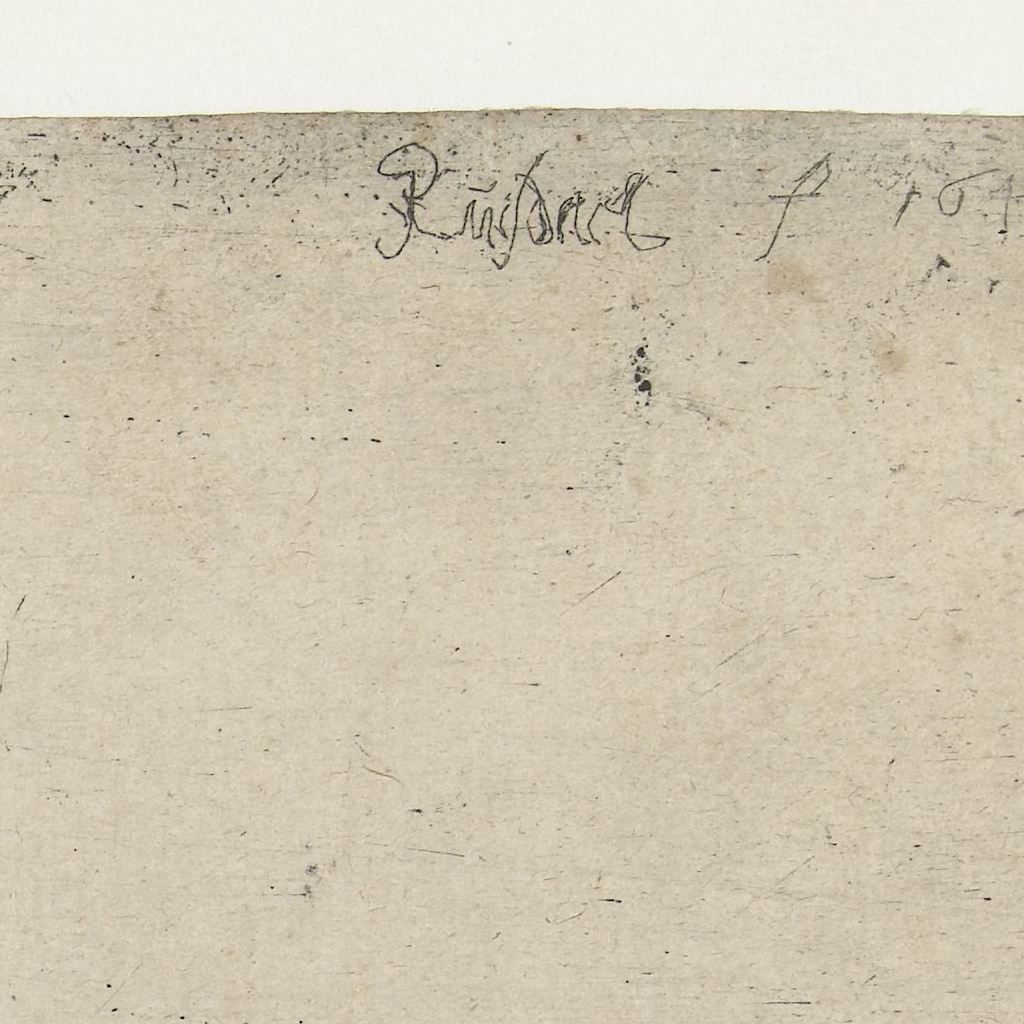 Ruisdael f 164